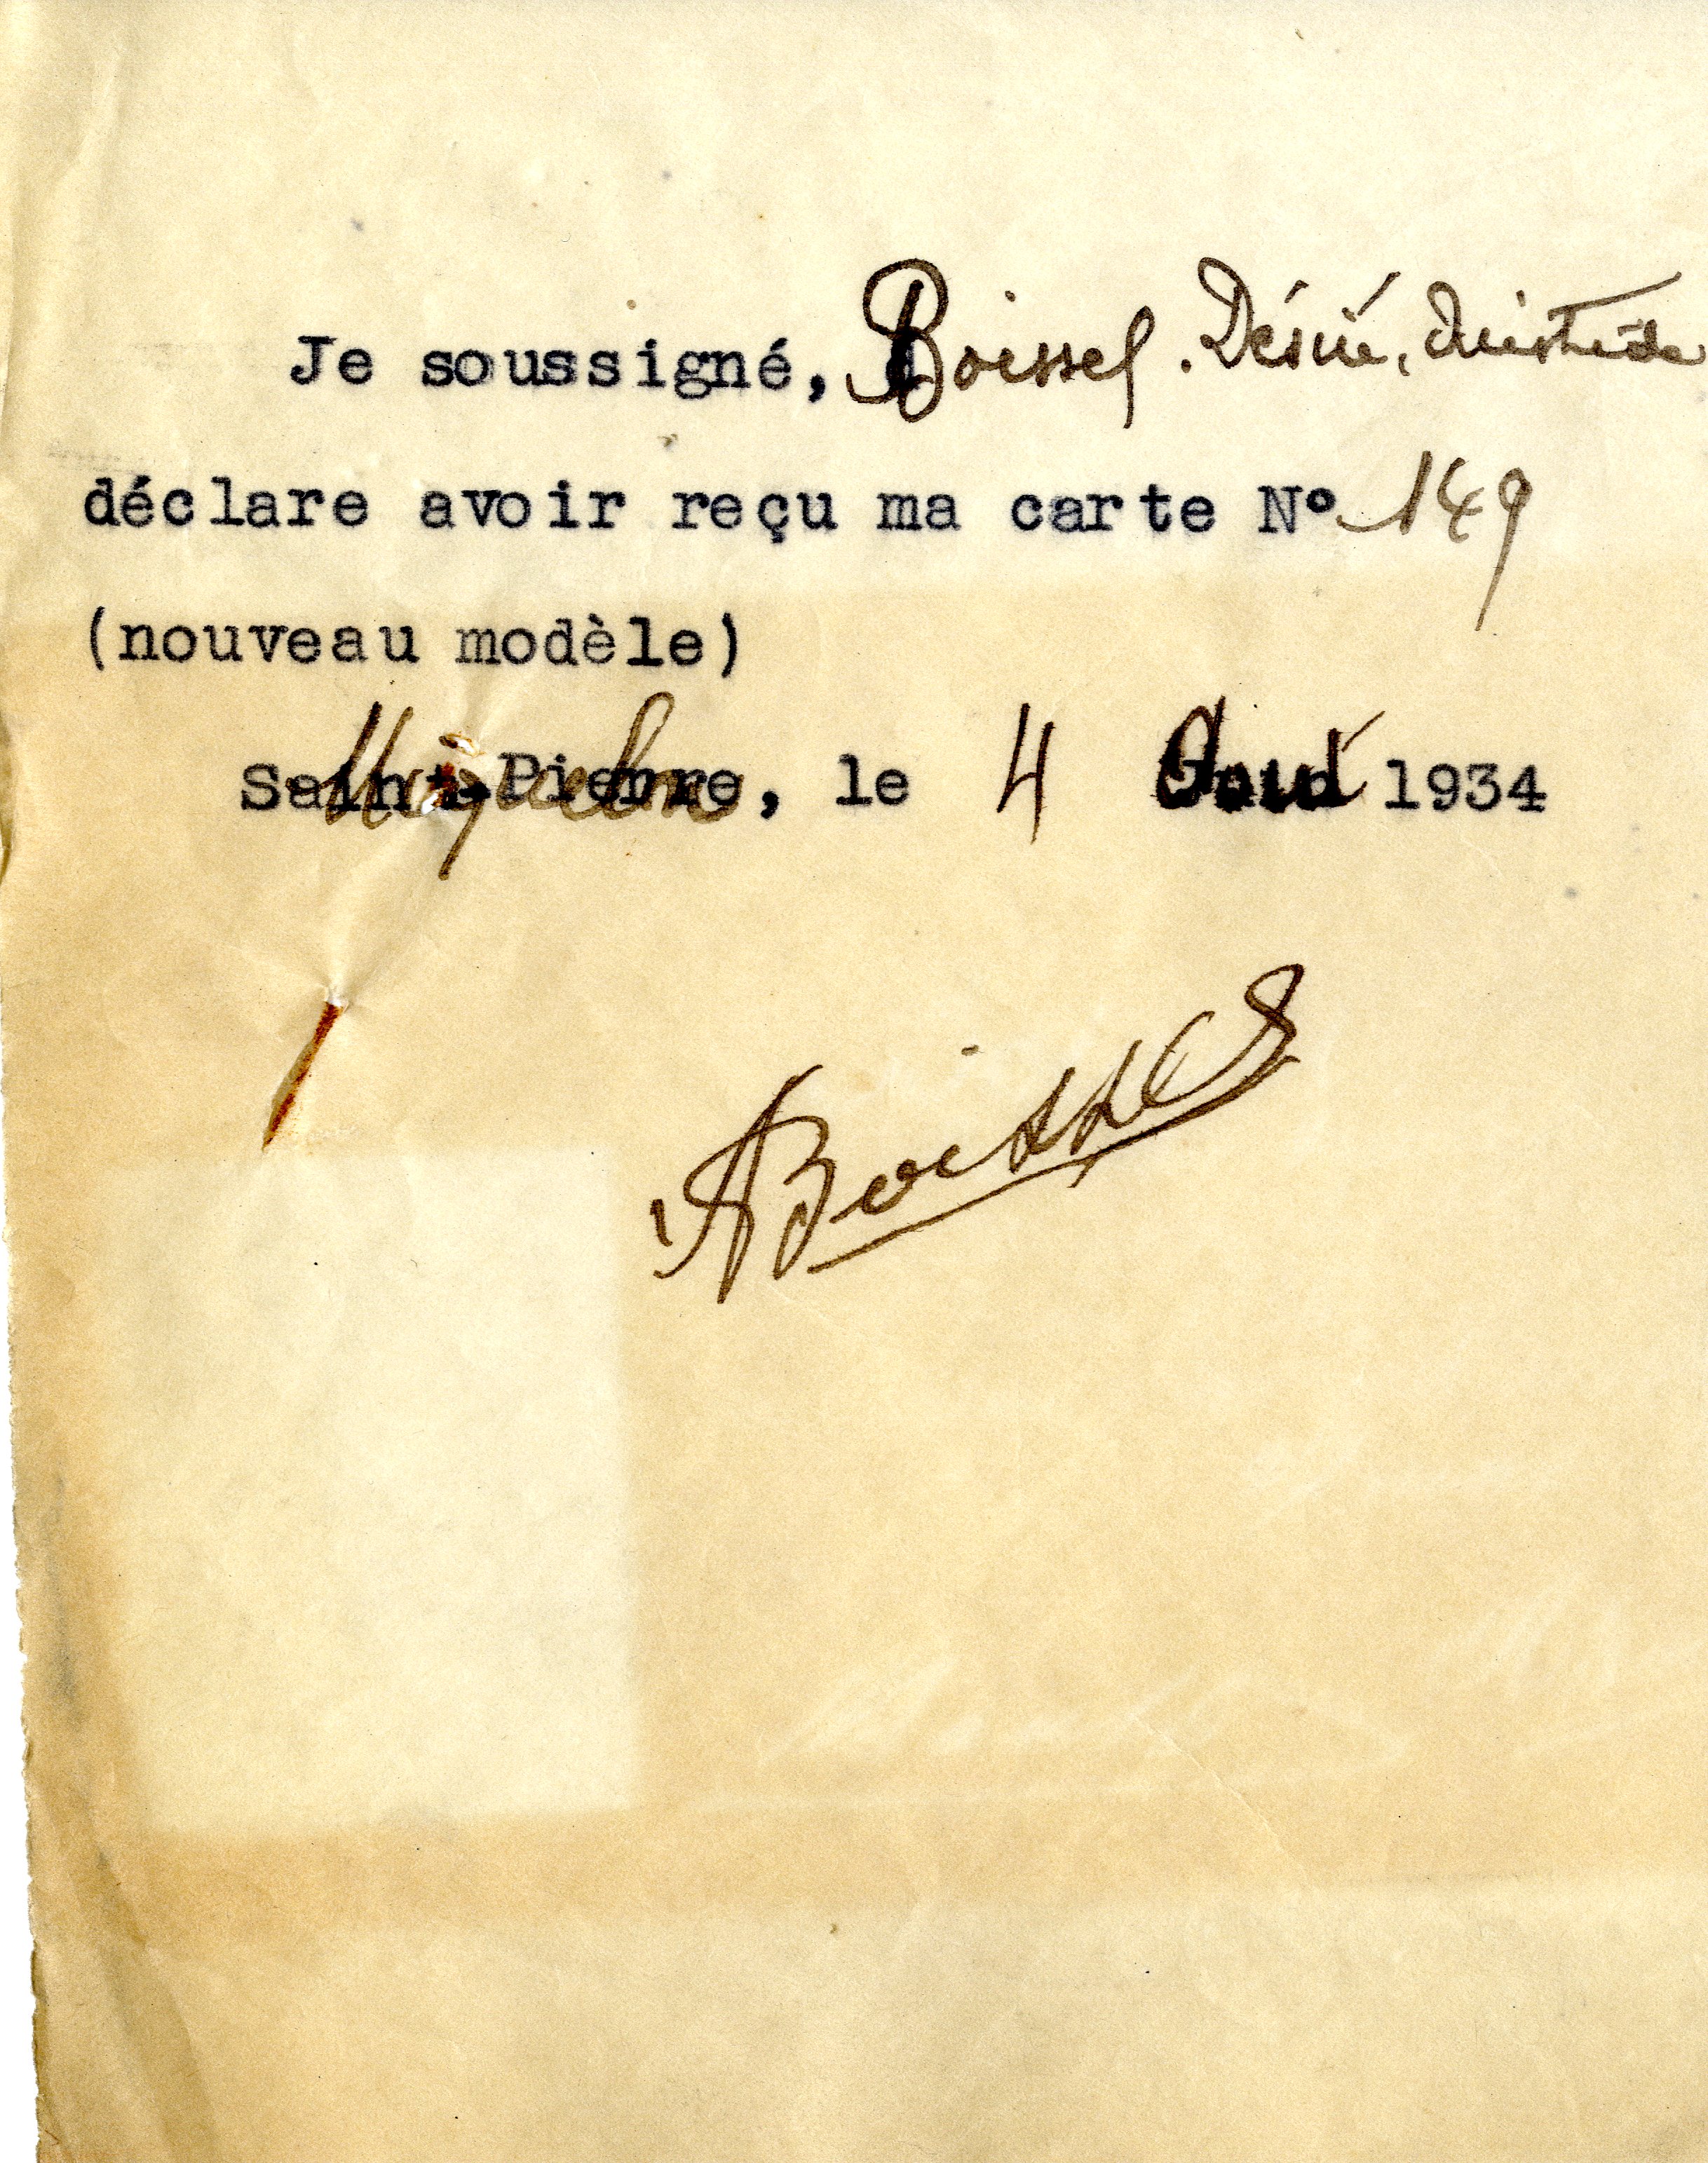 Je soussigné, Boissel. Désiré, Aristide
déclare avoir reçu ma carte N° 149
(nouveau modèle)
Saint-Pierre, Miquelon, le 4 Aout 1934
ABoissel